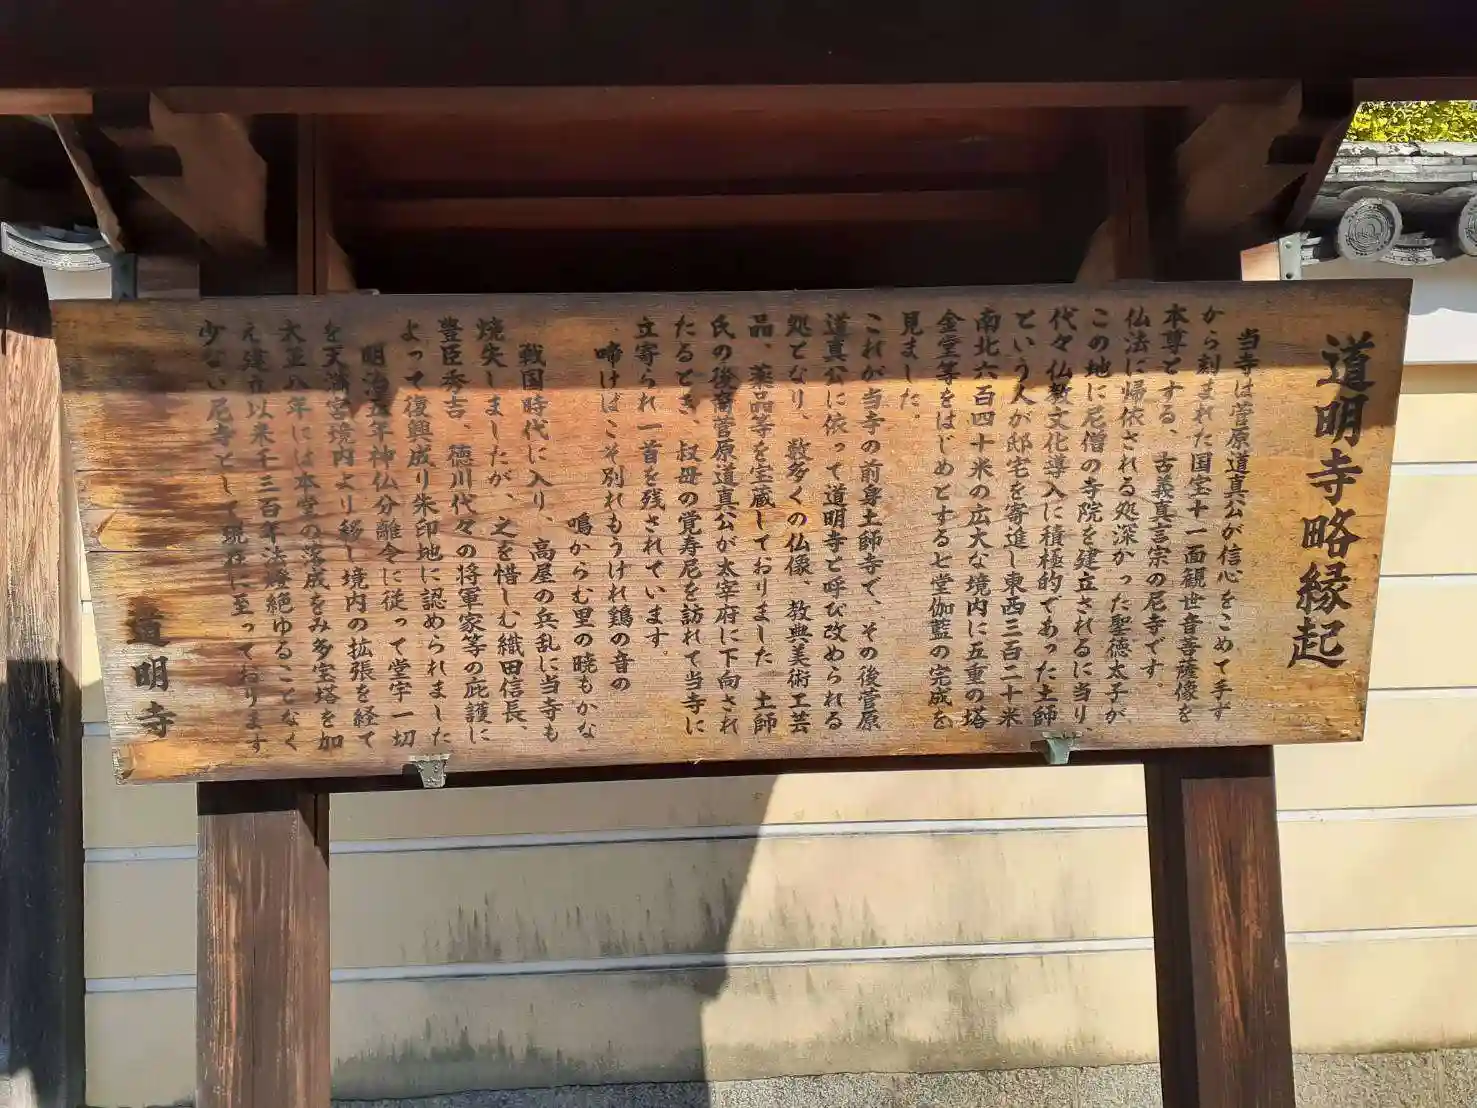 道明寺略縁起
当寺は菅原道真公が信心をこめて手ず
から刻まれた国宝十一面観世音菩薩像を
本尊とする、古義真言宗の尼寺です。
仏法に帰依される処深かった聖徳太子が
この地に尼僧の寺院を建立されるに当り、
代々仏教文化導入に積極的であった土師
という人が邸宅を寄進し東西三百二十米
南北六百四十米の広大な境内に五重の塔
金堂等をはじめとする七堂伽藍の完成を
見ました。
これが当寺の前身土師寺で、その後菅原
道真公に依って道明寺と呼び改められる
処となり、数多くの仏像、教典美術工芸
品、薬品等を宝蔵しておりました 土師
氏の後裔菅原道真公が太宰府に下向され
たるとき、叔母の覚寿尼を訪れて当寺に
立寄られ一首を残されています。
啼けばこそ別れもうけれ鶏の音の
鳴からむ里の暁もかな
戦国時代に入り、高屋の兵乱に当寺も
焼失しましたが、之を惜しむ織田信長、
豊臣秀吉、徳川代々の将軍家等の庇護に
よって復興成り朱印地に認められました
明治五年神仏分離令に従って堂宇一切
を天満宮境内より移し境内の拡張を経て
大正八年には本堂の落成をみ多宝塔を加
え建立以来千三百年法燈絶ゆることなく
少ない尼寺として現在に至っております
道明寺